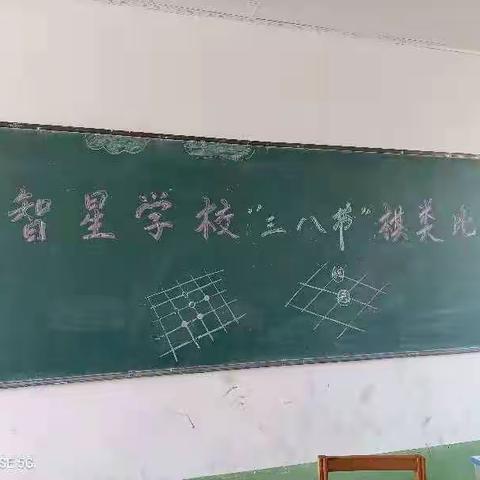 智星学校"三八节"棋类比
SE 5G